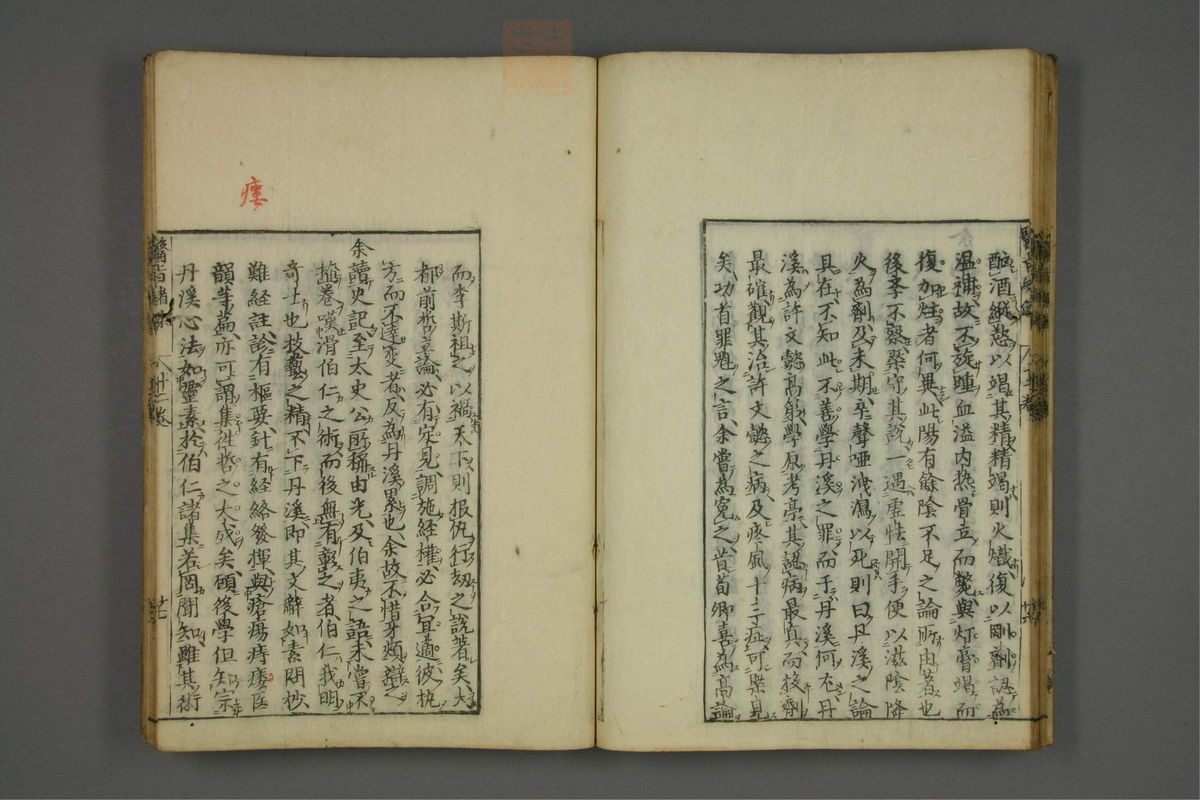 酗酒縱慾以竭其精精竭則火熾復以剛劑認為
温補故不旋踵血溢内热骨立而斃與灯膏竭而
復加炷者何異此陽有餘陰不足之論所由著也
後季不察槩守其說一遇虛怯開手便以滋陰降
火為劑及末期卒聲哑洩瀉以死則曰丹溪之論
具在不知此不善學丹溪之罪而于丹溪何尤丹
溪為許文懿高弟學原考亭其認病最真而投劑
最確觀其治許文懿之病及疼風十三症可槩見
矣功首罪魁之言余嘗為寃之昔荀卿喜為高論
而李斯祖之以禍天下則报仇行劫之說著矣大
都前哲立論必有定見調施經權必合宜適彼执
方而不達变者反為丹溪累也余故不惜牙頰辯之
余讀史記至太史公所稱由光及伯夷之語未嘗不
掩卷嘆滑伯仁之術而後無有彰之者伯仁我明
奇士也技藝之精不下丹溪即其文辭如素問抄
難經註診有樞要針有經絡發揮與瘡瘍痔瘻医
韻等篇亦可謂集徃哲之大成矣碩後學但知宗
丹溪心法如靈素於伯仁諸集若罔聞知雖其術
瘻
醫旨緒餘
十二卷
廿七